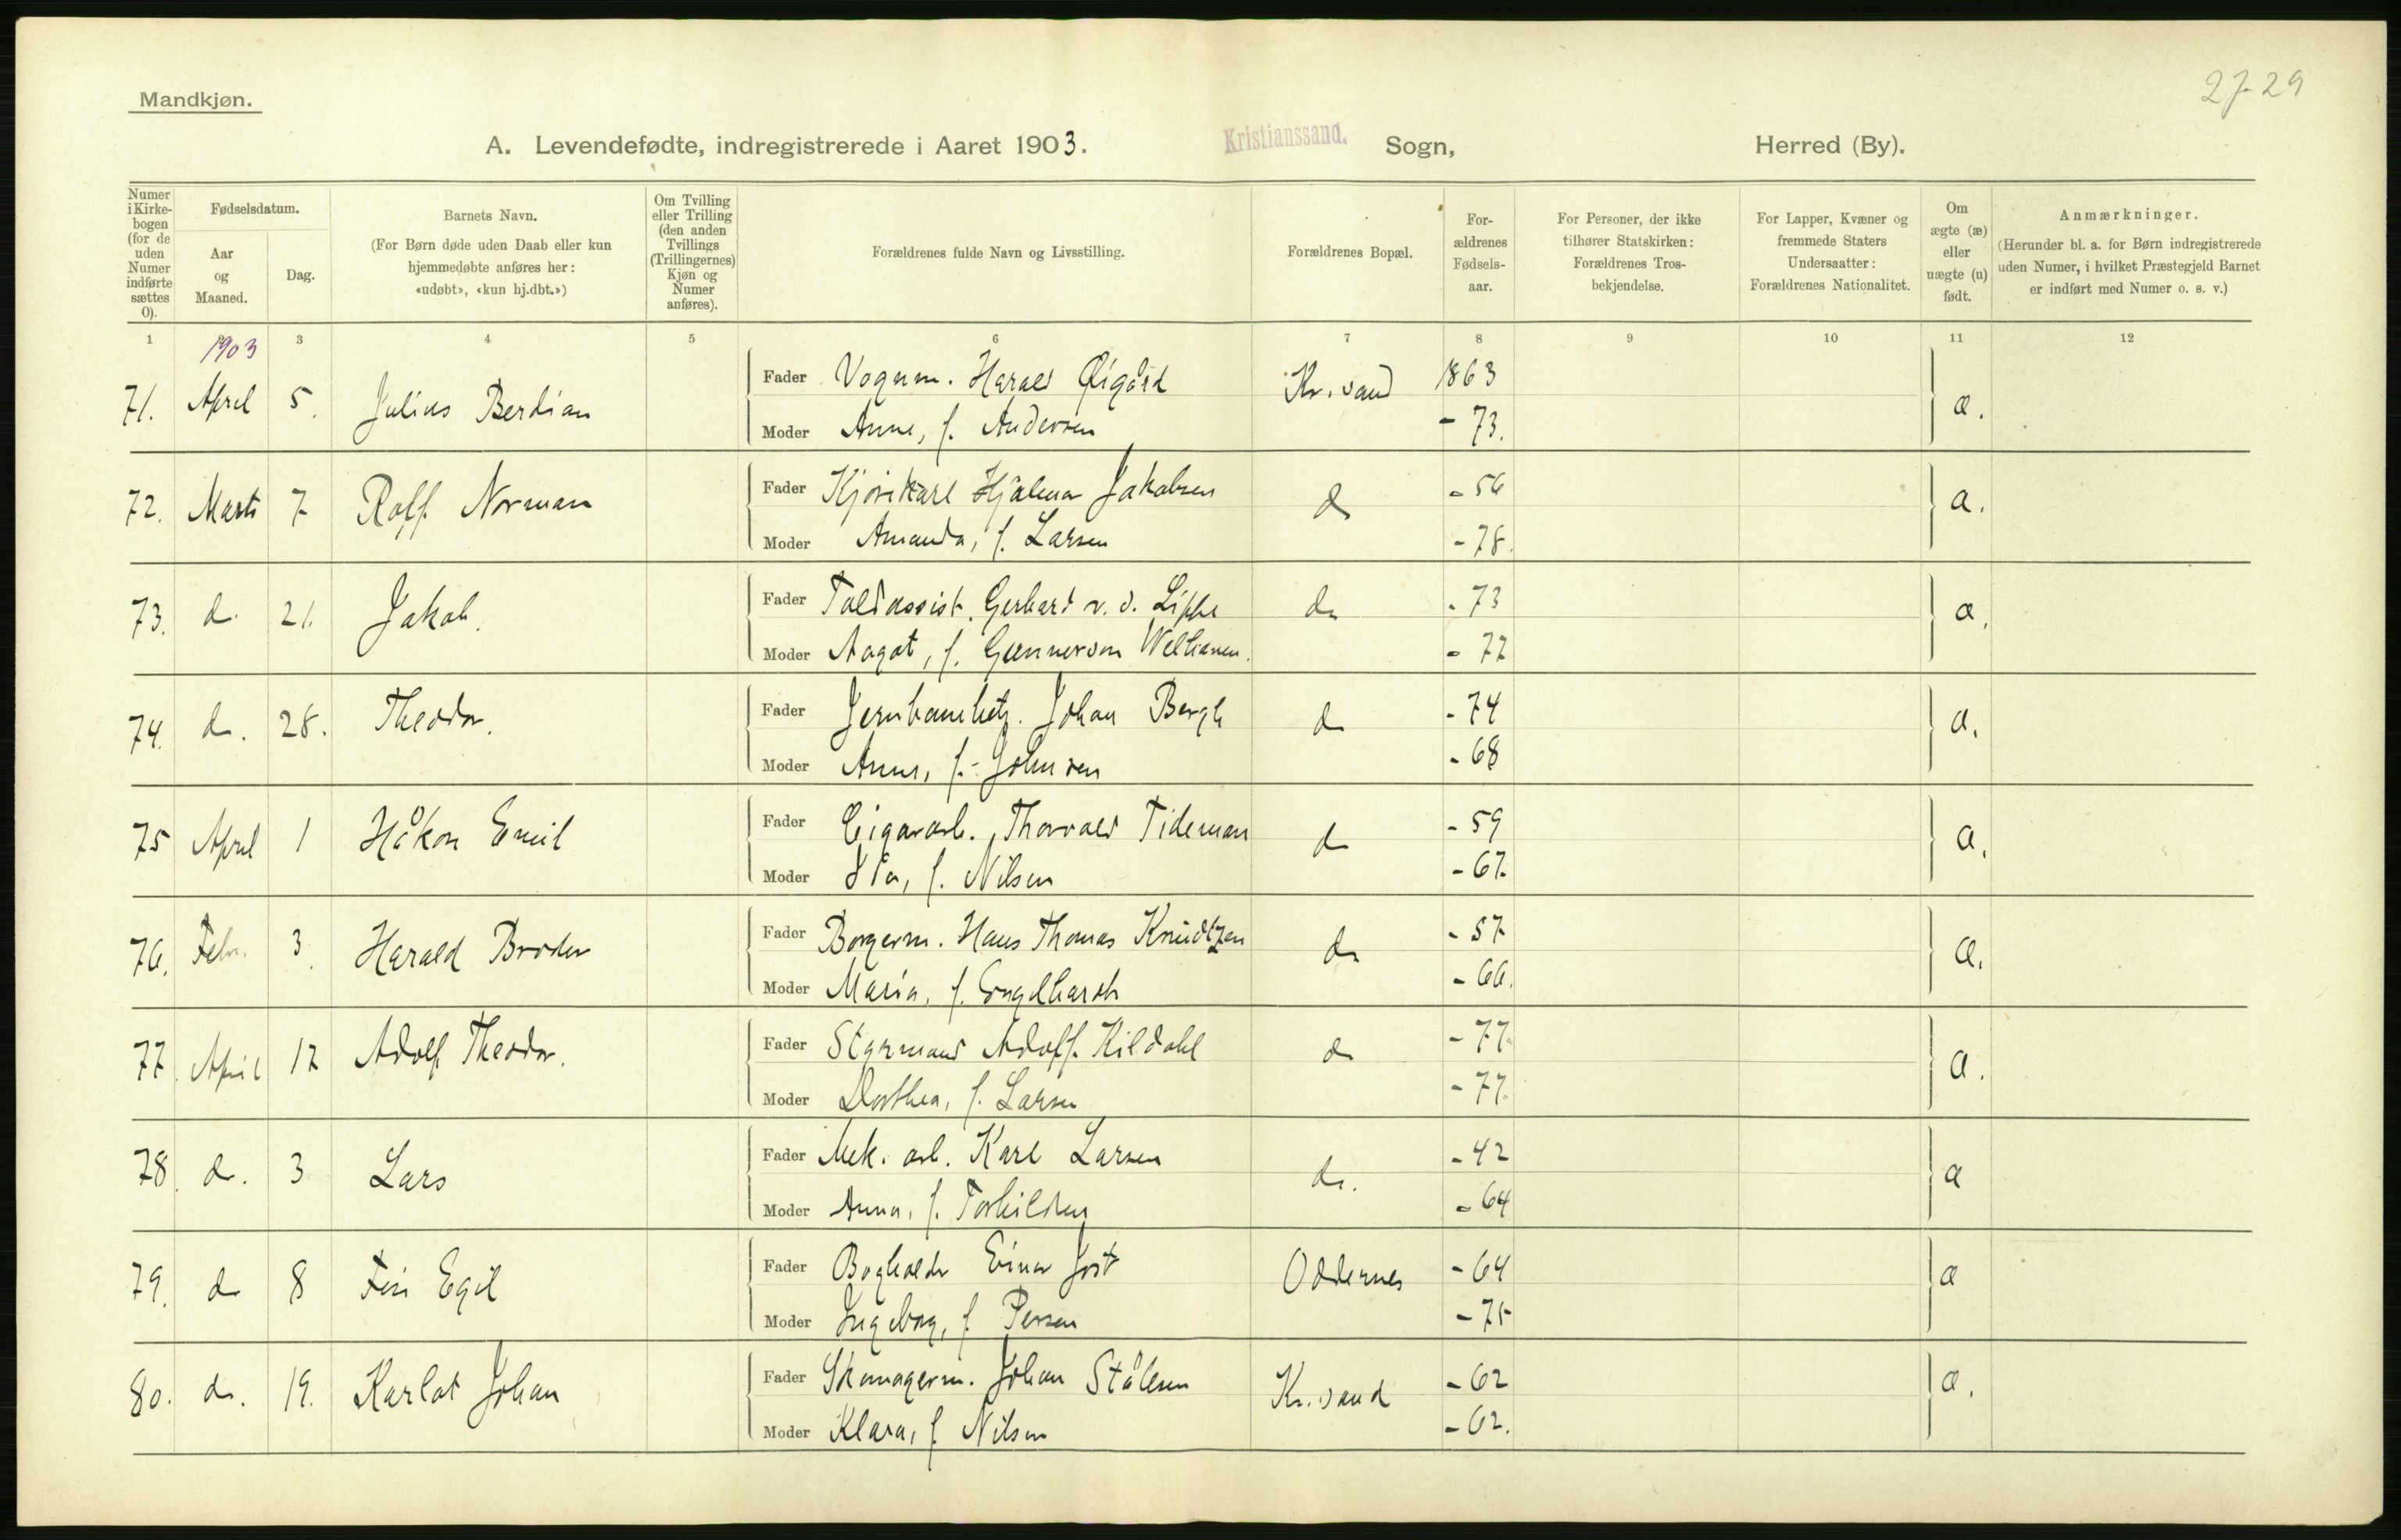 27-29
Mandkjøn.
A. Levendefødte, indregistrerede i Aaret 1903. Kristianssand. Sogn, Herred (By).
Numer i Kirkebogen (for de uden Numer indførte sættes 0).
Fødselsdatum.
Aar og Maaned.
Dag.
Barnets Navn.
(For Børn døde uden Daab eller kun hjemmedøbte anføres her: «udøbt», «kun hj.dbt.»)
Om Tvilling eller Trilling (den anden Tvillings (Trillingernes) Kjøn og Numer anføres).
Forældrenes fulde Navn og Livsstilling.
Forældrenes Bopæl.
Forældrenes Fødselsaar.
For Personer, der ikke tilhører Statskirken: Forældrenes Trosbekjendelse.
For Lapper, Kvæner og fremmede Staters Undersaatter: Forældrenes Nationalitet.
Om ægte (æ) eller uægte (u) født.
Anmærkninger.
(Herunder bl. a. for Børn indregistrerede uden Numer, i hvilket Præstegjeld Barnet er indført med Numer o. s. v.)
1 3 4 5 6 7 8 9 10 11 12
1903
71. April 5. Julius Berdian Fader Vognm. Harald Øigård Kr.sand 1863 æ.
Moder Anne, f. Andersen - 73.
72. Marts 7 Rolf Norman Fader Hjalmar Jakobsen d - 56 æ.
Moder Amanda, f. Larsen - 78.
73. d. 21. Jakob. Fader Toldassist. Gerhard v. d. Lippe do - 73 æ.
Moder Aagot, f. Gunnerson - 77
74. do. 28. Theodor. Fader Johan Bergh do - 74 æ.
Moder Anna, f. Johnsen - 68
75 April 1 Håkon Emil Fader Cigararb. Thorvald Tideman do - 59 æ.
Moder Ida, f. Nilsen - 67.
76. Febr. 3. Harald Broder Fader Borgerm. Hans Thomas Knudtzen do - 57 æ.
Moder Maria, f. Engelhardt - 66.
77. April 12 Adolf Theodor. Fader Styrmand Adolf Kildahl do - 77. æ.
Moder Dorthea, f. Larsen - 77.
78. do. 3 Lars Fader Mek. arb. Karl Larsen do. - 42 æ
Moder Anna, f. Torkildsen - 64
79. do 8 Egil Fader Bogholder Einar Jost Oddernes - 64 æ
Moder Ingeborg, f. Persen - 75
80. do. 19. Karlot Johan Fader Skomagerm. Johan Stålesen Kr.sand - 62 æ.
Moder Klara, f. Nilsen - 62.